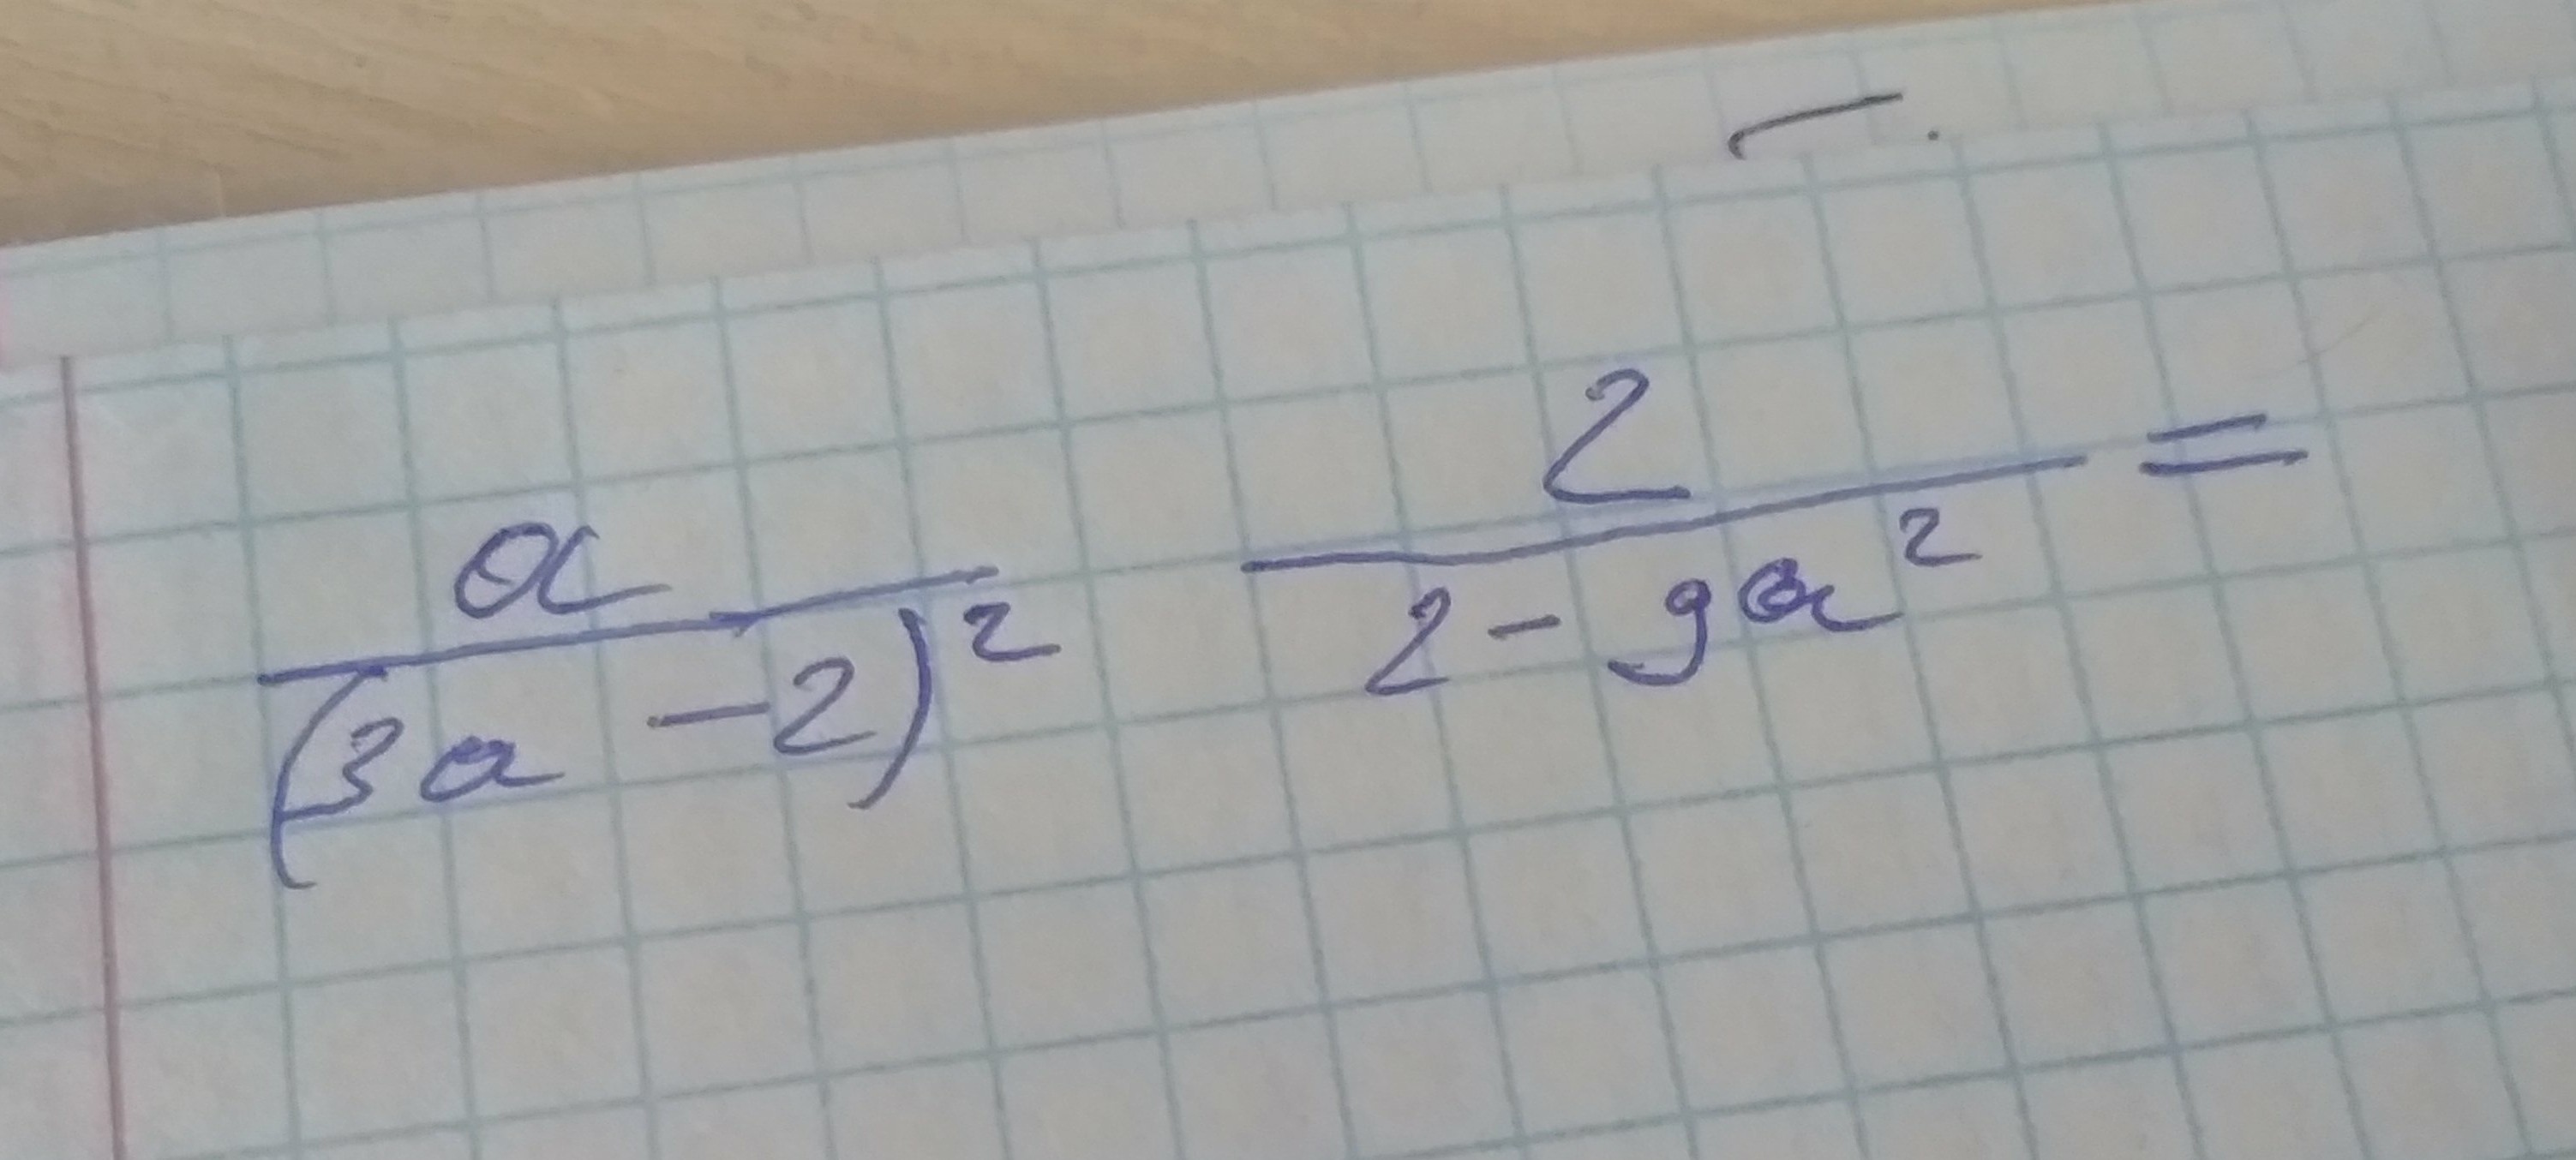 a 2
(3a - 2)² 2 - 9a² =